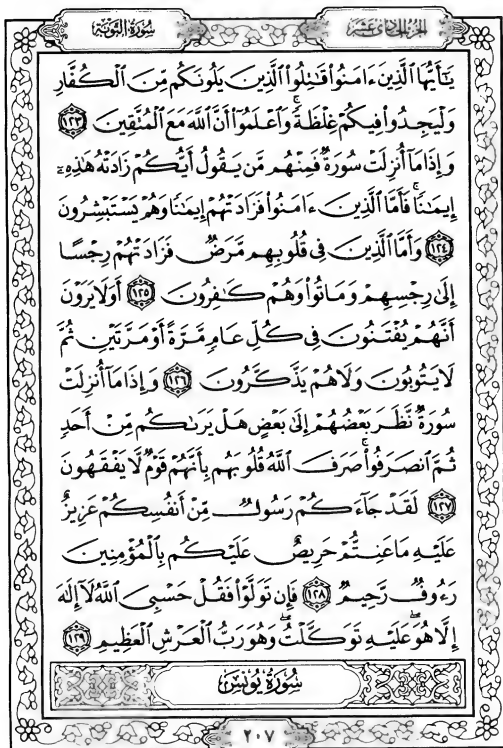 سُورَةُ التَّوْبَةِ الجُزْءُ الحَادِي عَشَرَ
يَٰٓأَيُّهَا ٱلَّذِينَ ءَامَنُوا۟ قَٰتِلُوا۟ ٱلَّذِينَ يَلُونَكُم مِّنَ ٱلْكُفَّارِ
وَلْيَجِدُوا۟ فِيكُمْ غِلْظَةً ۚ وَٱعْلَمُوٓا۟ أَنَّ ٱللَّهَ مَعَ ٱلْمُتَّقِينَ ١٢٣
وَإِذَا مَآ أُنزِلَتْ سُورَةٌ فَمِنْهُم مَّن يَقُولُ أَيُّكُمْ زَادَتْهُ هَٰذِهِۦٓ
إِيمَٰنًا ۚ فَأَمَّا ٱلَّذِينَ ءَامَنُوا۟ فَزَادَتْهُمْ إِيمَٰنًا وَهُمْ يَسْتَبْشِرُونَ
١٢٤ وَأَمَّا ٱلَّذِينَ فِى قُلُوبِهِم مَّرَضٌ فَزَادَتْهُمْ رِجْسًا
إِلَىٰ رِجْسِهِمْ وَمَاتُوا۟ وَهُمْ كَٰفِرُونَ ١٢٥ أَوَلَا يَرَوْنَ
أَنَّهُمْ يُفْتَنُونَ فِى كُلِّ عَامٍ مَّرَّةً أَوْ مَرَّتَيْنِ ثُمَّ
لَا يَتُوبُونَ وَلَا هُمْ يَذَّكَّرُونَ ١٢٦ وَإِذَا مَآ أُنزِلَتْ
سُورَةٌ نَّظَرَ بَعْضُهُمْ إِلَىٰ بَعْضٍ هَلْ يَرَىٰكُم مِّنْ أَحَدٍ
ثُمَّ ٱنصَرَفُوا۟ ۚ صَرَفَ ٱللَّهُ قُلُوبَهُم بِأَنَّهُمْ قَوْمٌ لَّا يَفْقَهُونَ
١٢٧ لَقَدْ جَآءَكُمْ رَسُولٌ مِّنْ أَنفُسِكُمْ عَزِيزٌ
عَلَيْهِ مَا عَنِتُّمْ حَرِيصٌ عَلَيْكُم بِٱلْمُؤْمِنِينَ
رَءُوفٌ رَّحِيمٌ ١٢٨ فَإِن تَوَلَّوْا۟ فَقُلْ حَسْبِىَ ٱللَّهُ لَآ إِلَٰهَ
إِلَّا هُوَ ۖ عَلَيْهِ تَوَكَّلْتُ ۖ وَهُوَ رَبُّ ٱلْعَرْشِ ٱلْعَظِيمِ ١٢٩
سُورَةُ يُونُسَ
٢٠٧